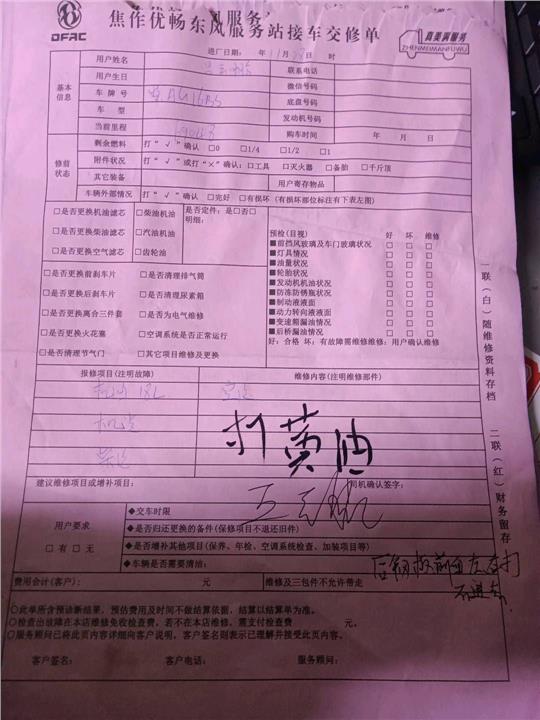 DFAC
焦作优畅东风服务站接车交修单
真美满服务
ZHENMEIMANFUWU
进厂日期： 年 11月 日 时
基本信息
用户姓名 联系电话
用户生日 微信号码
车牌号 底盘号码
车型 发动机号码
当前里程 购车时间 年 月 日
修前状态
剩余燃料 打“√”确认 □0 □1/4 □1/2 □1
附件状况 打“√”或打“×”确认：□工具 □灭火器 □备胎 □千斤顶
其它装备 用户寄存物品
车辆外部情况 打“√”确认 □完好 □有损坏（有损坏部位标注有下表左图）
□是否更换机油滤芯 □柴油机油 是否定件：是□否□
明细：
□是否更换柴油滤芯 □汽油机油
□是否更换空气滤芯 □齿轮油
□是否更换前刹车片 □是否清理排气筒
□是否更换后刹车片 □是否清理尿素箱
□是否更换离合三件套 □是否为电气维修
□是否更换火花塞 □空调系统是否正常运行
□是否清理节气门 □其它项目维修及更换
预检(目视) 好 坏 维修
■前挡风玻璃及车门玻璃状况 □ □ □
■灯具情况 □ □ □
■油量状况 □ □ □
■轮胎状况 □ □ □
■发动机机油状况 □ □ □
■防冻防锈瓶状况 □ □ □
■制动液液面 □ □ □
■动力转向液液面 □ □ □
■变速箱漏油情况 □ □ □
■后桥漏油情况 □ □ □
好：合格 坏：有故障需维修维修：用户确认维修
报修项目(注明故障) 维修内容(注明维修部件)
机油 18L 空滤
机滤
柴滤
打黄油
建议维修项目或增补项目： 司机确认签字：
用户要求
□有 □无
◆交车时限
◆是否归还更换的备件(保修项目不退还旧件)
◆是否增补其他项目(保养、年检、空调系统检查、加装项目等)
◆车辆是否需要清油：
后钢板前
打不进去
费用合计(客户)： 元 维修及三包件不允许带走
○此单所含预诊断结果，预估费用及时间不做结算依据，结算以结算单为准。
○检查出故障在本店维修免收检查费，若不在本店维修，需支付检查费 元。
○服务顾问已将此页内容详细向客户说明，客户签名则表示已理解并接受此页内容。
客户签名： 客户电话： 服务顾问：
一联（白）随维修资料存档
二联（红）财务留存